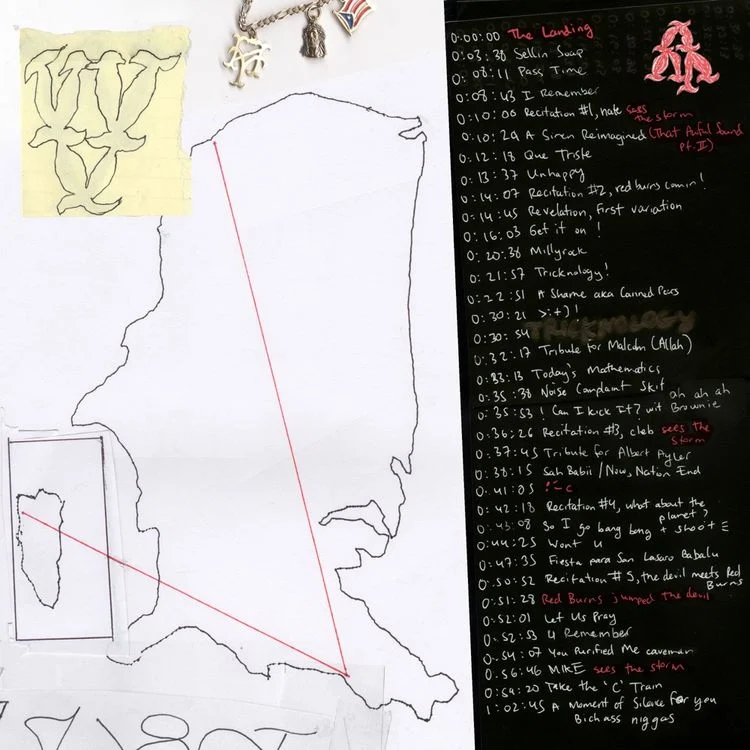 0:00:00 The Landing
0:03:38 Sellin Soap
0:08:11 Pass Time
0:08:43 I Remember
0:10:00 Recitation #1, nate sees the storm
0:10:29 A Siren Reimagined (That Awful Sound pt.II)
0:12:18 Que Triste
0:13:37 Unhappy
0:14:07 Recitation #2, red burns comin!
0:14:45 Revelation, First variation
0:16:03 Get it on!
0:20:38 Millyrock
0:21:57 Tricknology!
0:22:51 A Shame aka Canned Pears
0:30:21 >:+)!
0:30:54 TRICKNOLOGY
0:32:17 Tribute for Malcolm (Allah)
0:33:13 Today's Mathematics
0:35:38 Noise Complaint Skit
0:35:53 ! Can I Kick It? wit Brownie ah ah ah
0:36:26 Recitation #3, cleb sees the storm
0:37:45 Tribute for Albert Ayler
0:38:15 Sah Babii / Now, Nation End
0:41:05 :-c
0:42:18 Recitation #4, what about the planet?
0:43:08 So I go bang bang + shoot
0:44:25 Wont U
0:47:35 Fiesta para San Lasaro Babalu
0:50:52 Recitation #5, the devil meets Red Burns
0:51:28 Red Burns jumped the devil
0:52:01 Let Us Pray
0:52:53 U Remember
0:54:07 You Purified Me caveman
0:56:46 MIKE sees the storm
0:59:20 Take the 'C' Train
1:02:45 A Moment of Silence for you Bich ass niggas